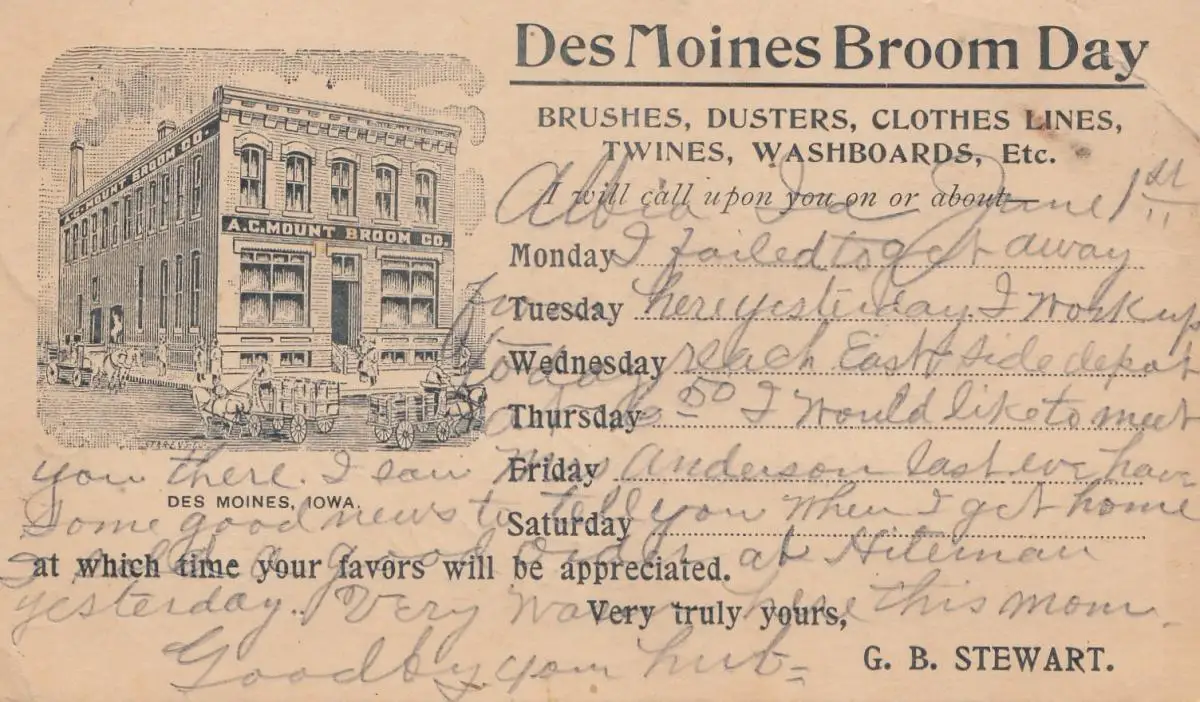 Des Moines Broom Day
BRUSHES, DUSTERS, CLOTHES LINES,
TWINES, WASHBOARDS, Etc.
I will call upon you on or about—
A.C. MOUNT BROOM CO.
A.C. MOUNT BROOM CO.
DES MOINES, IOWA.
Monday
Tuesday
Wednesday
Thursday
Friday
Saturday
at which time your favors will be appreciated.
Very truly yours,
G. B. STEWART.
Albia Ia June 1st 11
I failed to get away
from here yesterday. I work up
today reach East side depot
50 I would like to meet
you there. I saw Mrs Anderson last eve have
Some good news to tell you when I get home
I sold a good order at Hiteman
yesterday. Very warm here this morn.
Goodby your hub